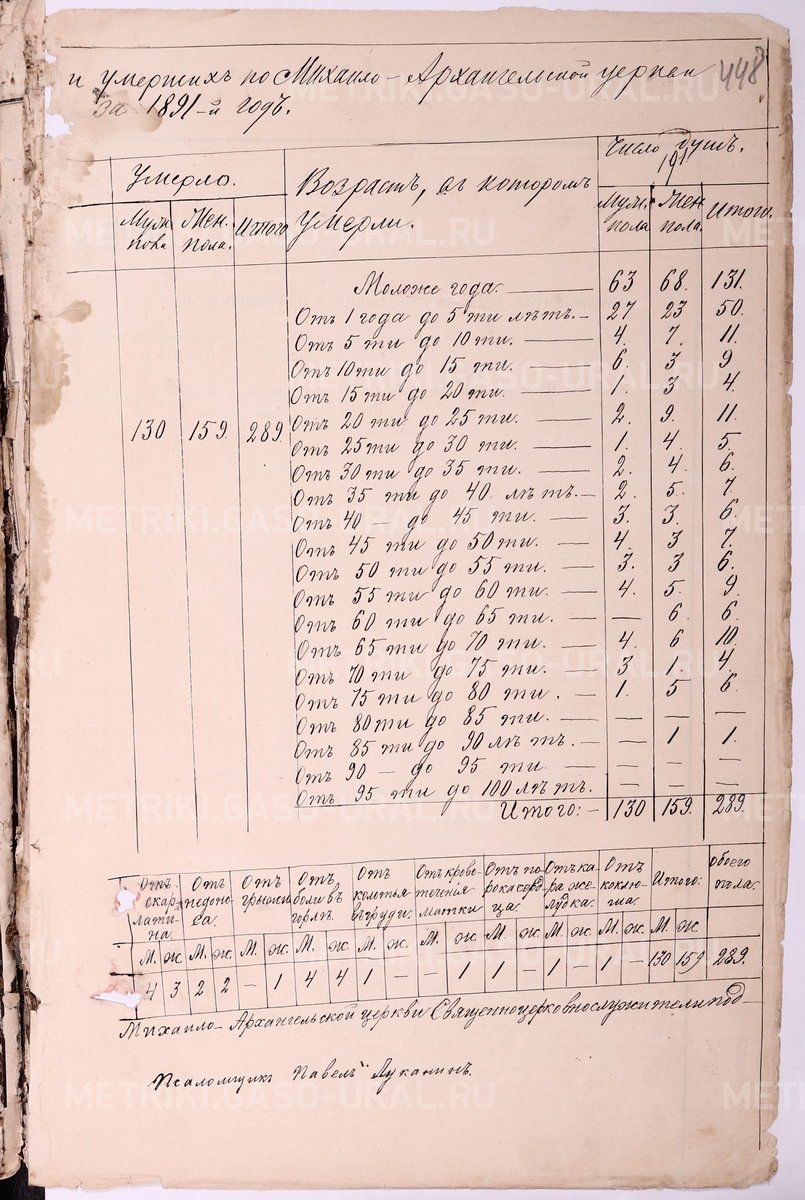 и умершихъ по Михаило-Архангельской церкви
за 1891-й годъ.
448
Умерло. Возрастъ, въ которомъ умерли. Число душъ.
Муж. пола Жен. пола. Итого Муж. пола Жен. пола. Итого.
Моложе года. — 63 68. 131.
Отъ 1 года до 5 ти лѣтъ. — 27 23 50.
Отъ 5 ти до 10 ти. — 4. 7. 11.
Отъ 10 ти до 15 ти. — 6. 3 9
Отъ 15 ти до 20 ти. — 1. 3 4.
130 159. 289. Отъ 20 ти до 25 ти. — 2. 9. 11.
Отъ 25 ти до 30 ти. — 1. 4 5.
Отъ 30 ти до 35 ти. — 2. 4. 6.
Отъ 35 ти до 40 лѣтъ. — 2. 5. 7.
Отъ 40 — до 45 ти. — 3. 3. 6.
Отъ 45 ти до 50 ти. — 4. 3 7.
Отъ 50 ти до 55 ти. — 3. 3 6.
Отъ 55 ти до 60 ти. — 4. 5. 9.
Отъ 60 ти до 65 ти. — 6. 6.
Отъ 65 ти до 70 ти. — 4. 6 10.
Отъ 70 ти до 75 ти. — 3 1. 4.
Отъ 75 ти до 80 ти. — 1. 5 6.
Отъ 80 ти до 85 ти. — — — —
Отъ 85 ти до 90 лѣтъ. — — 1 1.
Отъ 90 — до 95 ти. — — — —
Отъ 95 ти до 100 лѣтъ. — — — —
Итого: — 130 159. 289.
Отъ скарлатина. Отъ недоноса. Отъ грыжи Отъ боли въ горлѣ. Отъ колотья въ груди. Отъ кровотеченія матки Отъ порока сердца. Отъ катара желудка. Отъ коклюша. Итого: обоего пола.
М. Ж. М. Ж. М. Ж. М. Ж. М. Ж. М. Ж. М. Ж. М. Ж. М. Ж. М. Ж.
4 3 2 2 — 1 4 4 1 — — 1 1 — 1 — 1 — 130 159 289.
Михаило-Архангельской церкви Священноцерковнослужители под-
Псаломщикъ Павелъ Луканинъ.
METRIKI.GASO-URAL.RU